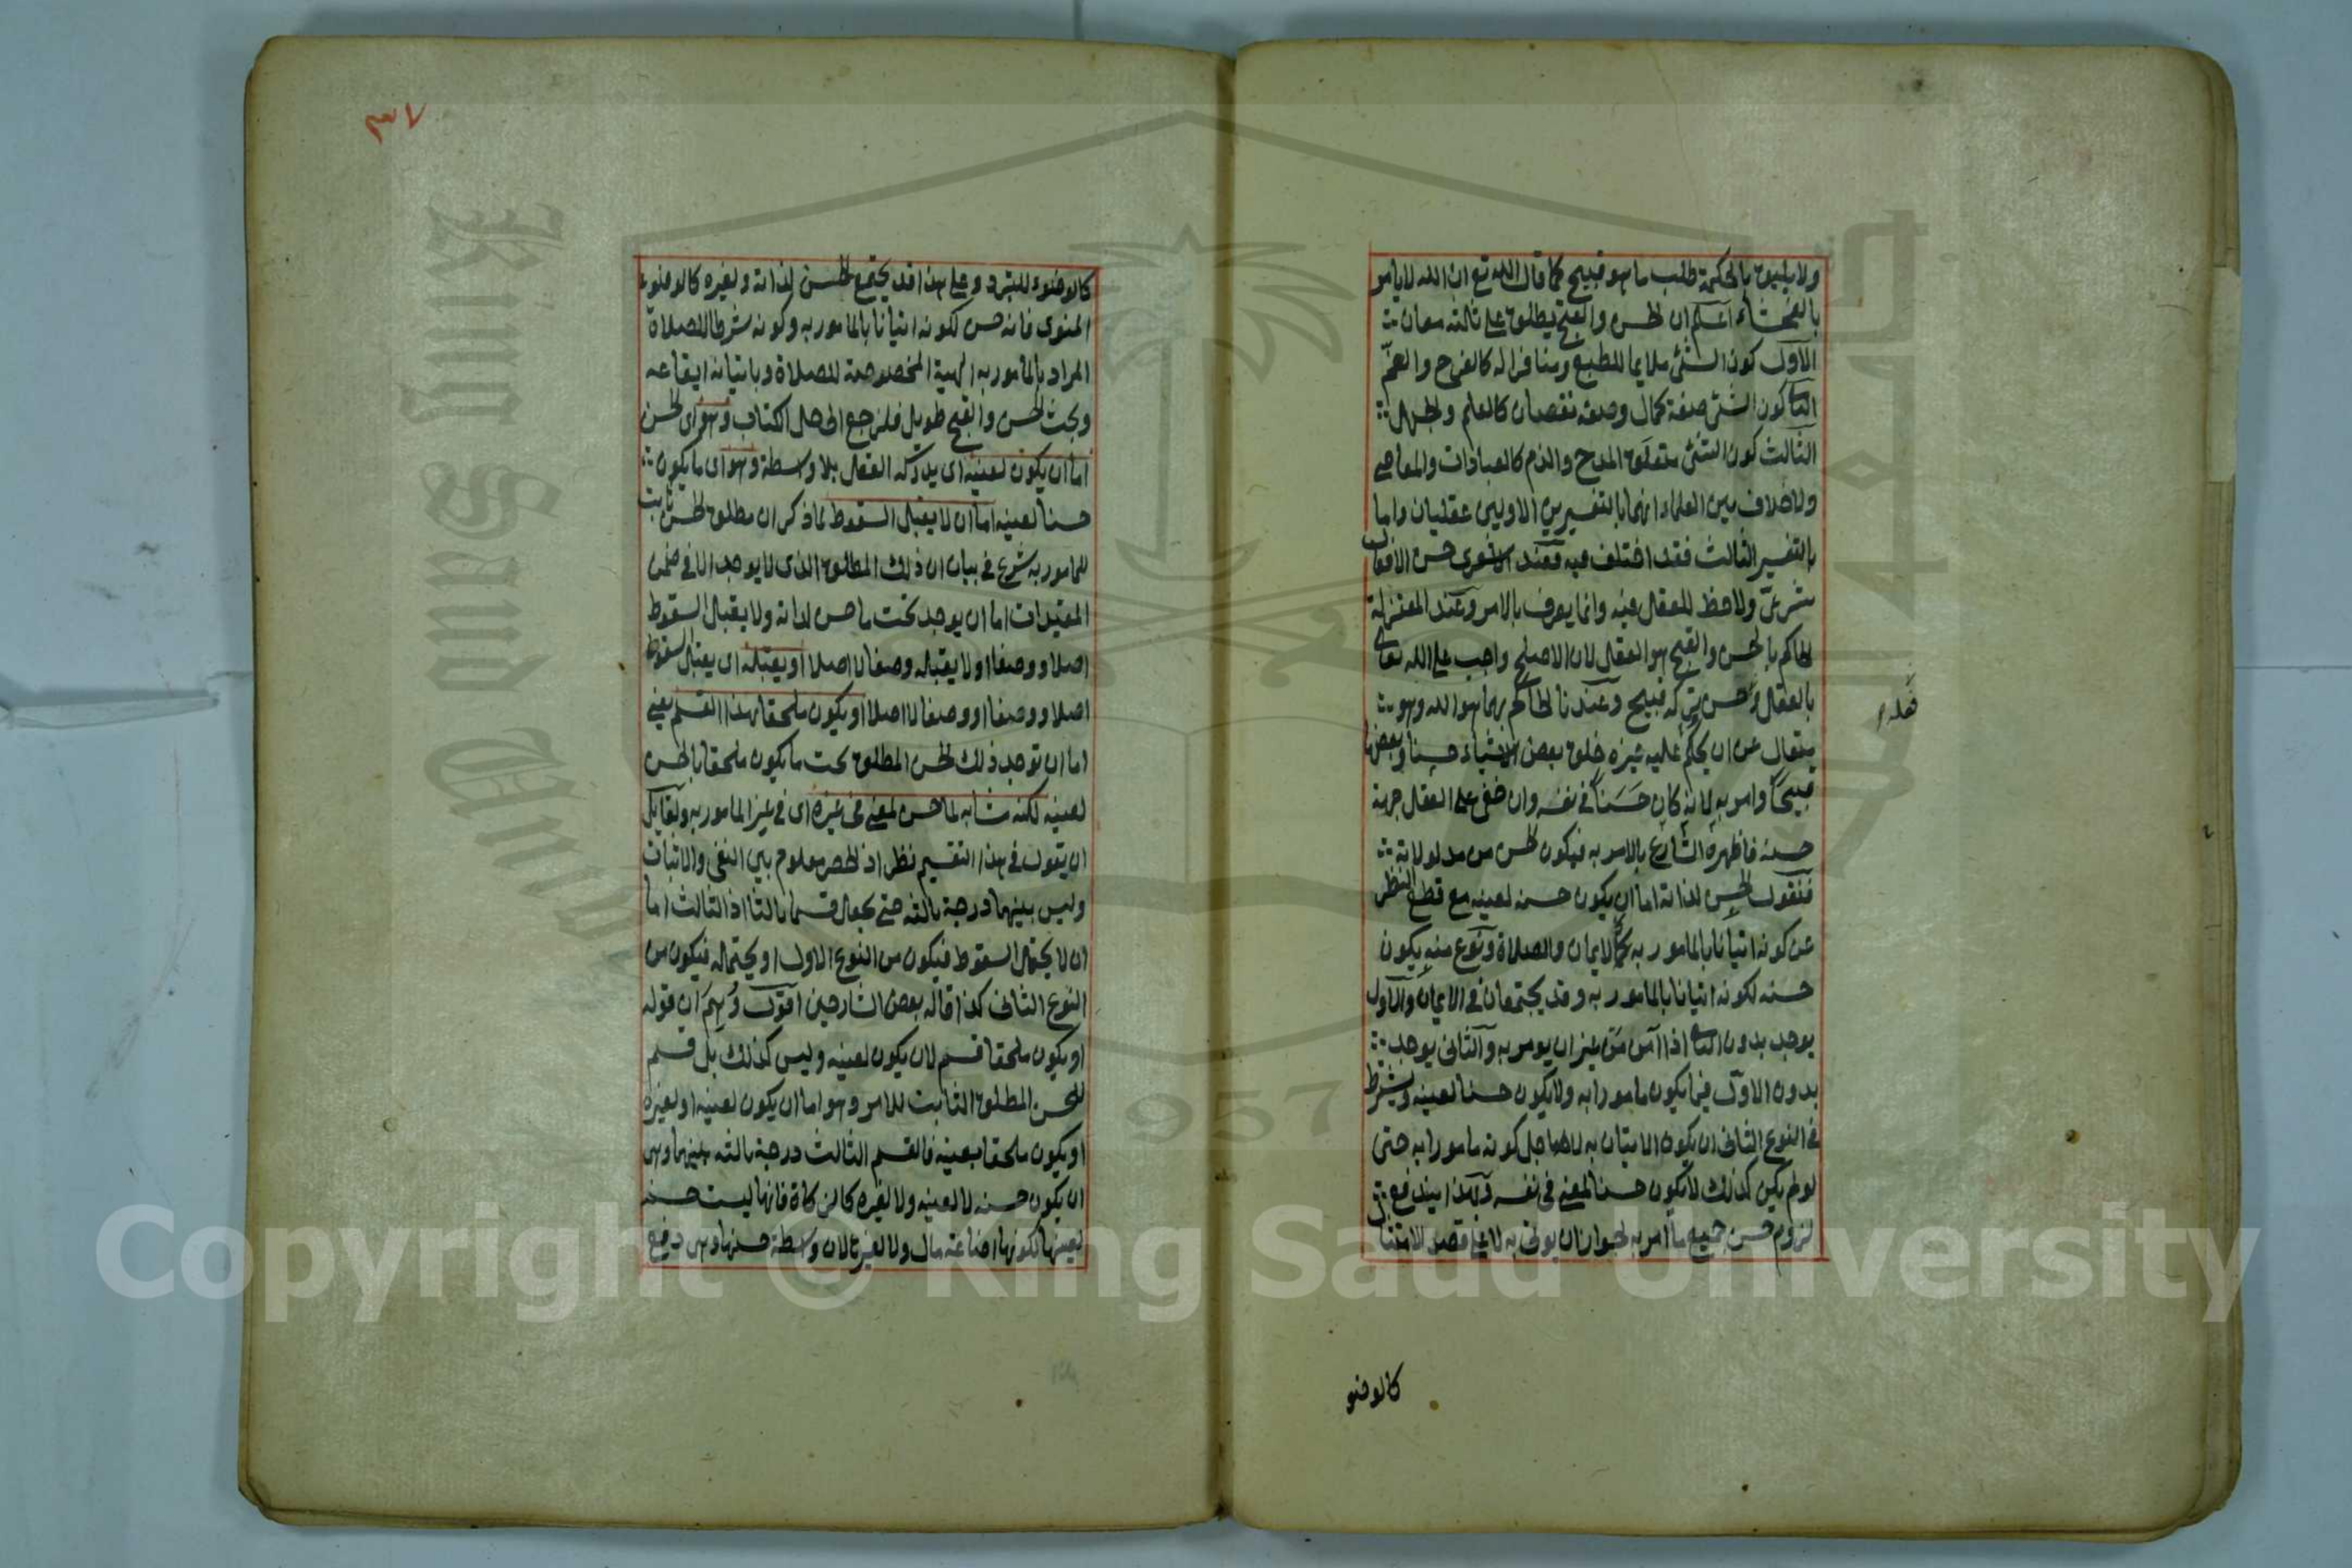 ولا يليق بالحكمة طلب ما هو قبيح كما قال الله تع ان الله لا يامر
بالفحشاء اعلم ان الحسن والقبح يطلق على ثالثه معان
الاول كون الشئ ملايما للطبع ومنافرا له كالفرح والغم
الثا كون الشئ صفة كمال وصفه نقصان كالعلم والجهل
الثالث كون الشئ متعلق المدح والذم كالعبادات والمعاصے
ولا خلاف بين العلماء انهما بالتفسيرين الاولين عقليان واما
بالتفسير الثالث فقد اختلف فيه فعند الاشعرى حسن الافعال
شرعى ولا حظ للعقل فيه وانما يعرف بالامر وعند المعتزلة
الحاكم بالحسن والقبح هو العقل لان الاصلح واجب على الله تعالى
بالعقل وحسن تركه قبيح وعندنا الحاكم بهما هو الله وهو
فعله
يتعال عن ان يحكم عليه غيره خلق بعض الاشياء حسنا وبعضها
قبيحا وامر به لانه كان حَسَنا في نفسه وان خفى على العقل جهة
حسنه فاظهره الشارع بالامر به فيكون الحسن من مدلولاته
فنقول الحسن لذاته اما ان يكون حسنه لعينه مع قطع النظر
عن كونه اتيانا بالمامور به كالايمان والصلاة ونوع منه يكون
حسنه لكونه اتيانا بالمامور به وقد يجتمعان في الايمان والاول
يوجد بدون الثا اذا آمن من غير ان يومر به والثانى يوجد
بدون الاول فيما يكون مامورا به ولا يكون حسنا لعينه ويشترط
في النوع الثانى ان يكون الاتيان به لاجل كونه مامورا به حتى
لو لم يكن كذلك لا يكون حسنا لمعنى في نفسه وبهذا يندفع
لزوم حسن جميع ما امر به لجواز ان يوتى به لا على قصد الامتثال
كالوضو
٣٧
كالوضوء للتبرد وعلى هذا قد يجتمع الحسن لذاته ولغيره كالوضوء
المنوى فانه حسن لكونه اتيانا بالمامور به وكونه شرطا للصلاة
المراد بالمامور به الهيئة المخصوصة للصلاة وباتيانه ايقاعه
وبحث الحسن والقبح طويل فلنرجع الى حل الكتاب وهو اى الحسن
اما ان يكون لعينه اى يدركه العقل بلا واسطة وهو اى ما يكون
حسنا لعينه اما ان لا يقبل السقوط لما ذكر ان مطلق الحسن ثابت
للمامور به شرع في بيان ان ذلك المطلق الذى لا يوجد الا في ضمن
المقيدات اما ان يوجد تحت ما حسن لذاته ولا يقبل السقوط
اصلا ووصفا او لا يقبله وصفا لا اصلا او يقبله اى يقبل السقوط
اصلا ووصفا او وصفا لا اصلا او يكون ملحقا بهذا القسم يعنے
اما ان توجد ذلك الحسن المطلق تحت ما يكون ملحقا بالحسن
لعينه لكنه مشابه لما حسن لمعنى في غيره اى في غير المامور به ولقايل
ان يقول في هذا التقسيم نظر اذ الحصر معلوم بين النفى والاثبات
وليس بينهما درجة ثالثه حتى يجعل قسما ثالثا اذ الثالث اما
ان لا يحتمل السقوط فيكون من النوع الاول او يحتمله فيكون من
النوع الثانى كذا قاله بعض الشارحين اقول وُهِمَ ان قوله
او يكون ملحقا قسم لان يكون لعينه وليس كذلك بل قسم
للحسن المطلق الثابت للامر وهو اما ان يكون لعينه او لغيره
او يكون ملحقا بعينه فالقسم الثالث درجة ثالثه بينهما وهى
ان يكون حسنه لا لعينه ولا لغيره كالزكاة فانها ليست حسنه
لعينها لكونها اضاعة مال ولا لغيرها لان واسطة حسنها وهى دفع